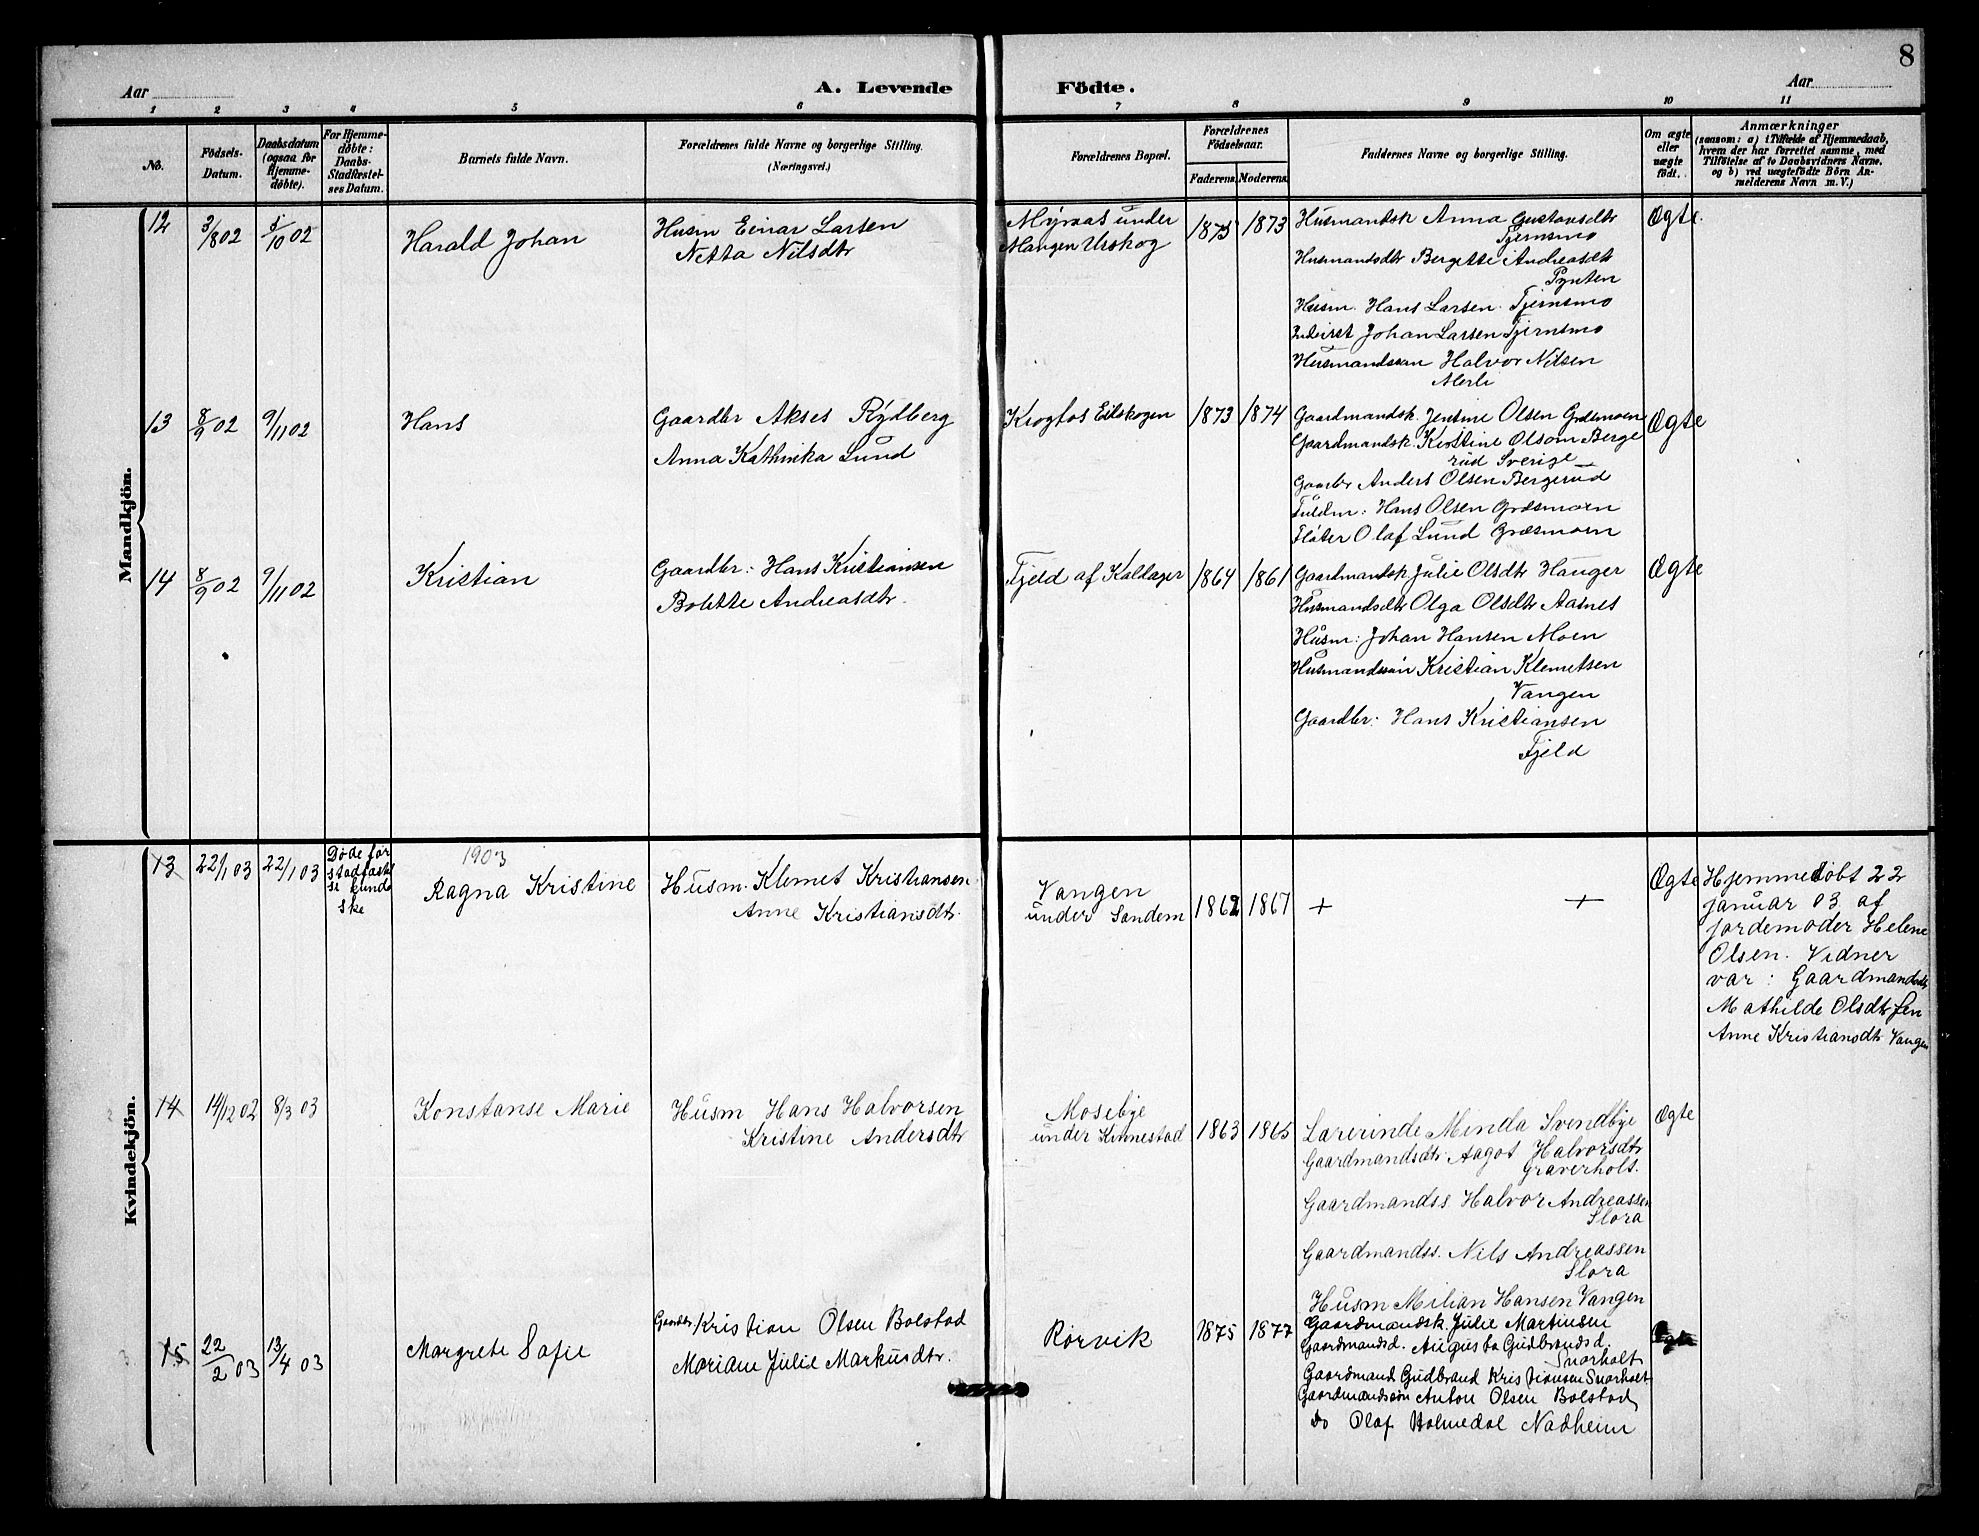 8
Aar
A. Levende Födte.
Aar
1 2 3 4 5 6 7 8 9 10 11
No.
Födsels-
Datum.
Daabsdatum
(ogsaa for
Hjemme-
döbte).
For Hjemme-
döbte:
Daabs-
Stadfæstel-
ses Datum.
Barnets fulde Navn.
Forældrenes fulde Navne og borgerlige Stilling.
(Næringsvei.)
Forældrenes Bopæl.
Forældrenes
Födselsaar.
Faderens. Moderens.
Faddernes Navne og borgerlige Stilling.
Om ægte
eller
uægte
födt.
Anmærkninger
(saasom: a) i Tilfælde af Hjemmedaab,
hvem der har forrettet samme, med
Tilföielse af to Daabsvidners Navne,
og b) ved uægtefödte Börn An-
melderens Navn m. V.)
Mandkjön.
12
3/8 02
5/10 02
Harald Johan
Husm Einar Larsen
Netta Nilsdtr
Myraas under
Mangen Urskog
1875
1873
Husmandsk Anna Gustavsdtr
Tjernsmo
Husmandsdtr Bergitte Andreasdtr
Pynten
Husm. Hans Larsen Tjernsmo
Johan Larsen Tjernsmo
Husmandssøn Halvor Nilsen
Ægte.
13
8/9 02
9/11 02
Hans
Gaardbr Akses Rydberg
Anna Kathinka Lund
Krogfos Eidskogen
1873
1874
Gaardmandsk. Jensine Olsen Græsmoen
Gaardmandsk. Kirstine Olsom Berge
rud Sverige
Gaardbr Anders Olsen Bergerud
Fuldm: Hans Olsen Græsmoen
Fløter Olaf Lund Græsmoen
Ægte
14
8/9 02
9/11 02
Kristian
Gaardbr: Hans Kristiansen
Bolette Andreasdtr.
Fjeld af Kaldager
1864
1861
Gaardmandsk Julie Olsdtr Hauger
Husmandsdtr Olga Olsdtr Aasnes
Husm: Johan Hansen Moen
Husmandssøn Kristian Klemetsen
Vangen
Gaardbr: Hans Kristiansen
Fjeld
Ægte
Kvindekjön.
13
22/1 03
22/1 03
Døde før
stadfæstel
se kunde
ske
1903
Ragna Kristine
Husm. Klemet Kristiansen
Anne Kristiansdtr.
Vangen
under Sandem
1862
1867
+ +
Ægte
Hjemmedøbt 22
januar 03 af
jordemoder Helene
Olsen. Vidner
var: Gaardmandsdtr
Mathilde Olsdtr Fen
Anne Kristiansdtr Vangen
14
14/12 02
8/3 03
Konstanse Marie
Husm Hans Halvorsen
Kristine Andersdtr
Mosebye
under Kinnestad
1863
1865
Lærerinde Minda Svendbye
Gaardmandsdtr Aagot Halvorsdtr
Graverholt.
Gaardmandss. Halvor Andreassen
Slora
Gaardmandss. Nils Andreassen
Slora
Husm Milian Hansen Vangen
Ægte
15
22/2 03
13/4 03
Margrete Sofie
Gaardbr Kristian Olsen Bolstad
Mariane Julie Markusdtr.
Rørvik
1875
1877
Gaardmandsk. Julie Martinsen
Gaardmandsd. Augusta Gudbrandsd.
Snorholt
Gaardmand Gudbrand Kristiansen Snorholt
Gaardmandssøn Anton Olsen Bolstad
Do Olaf Holmedal Nadheim
Ægte